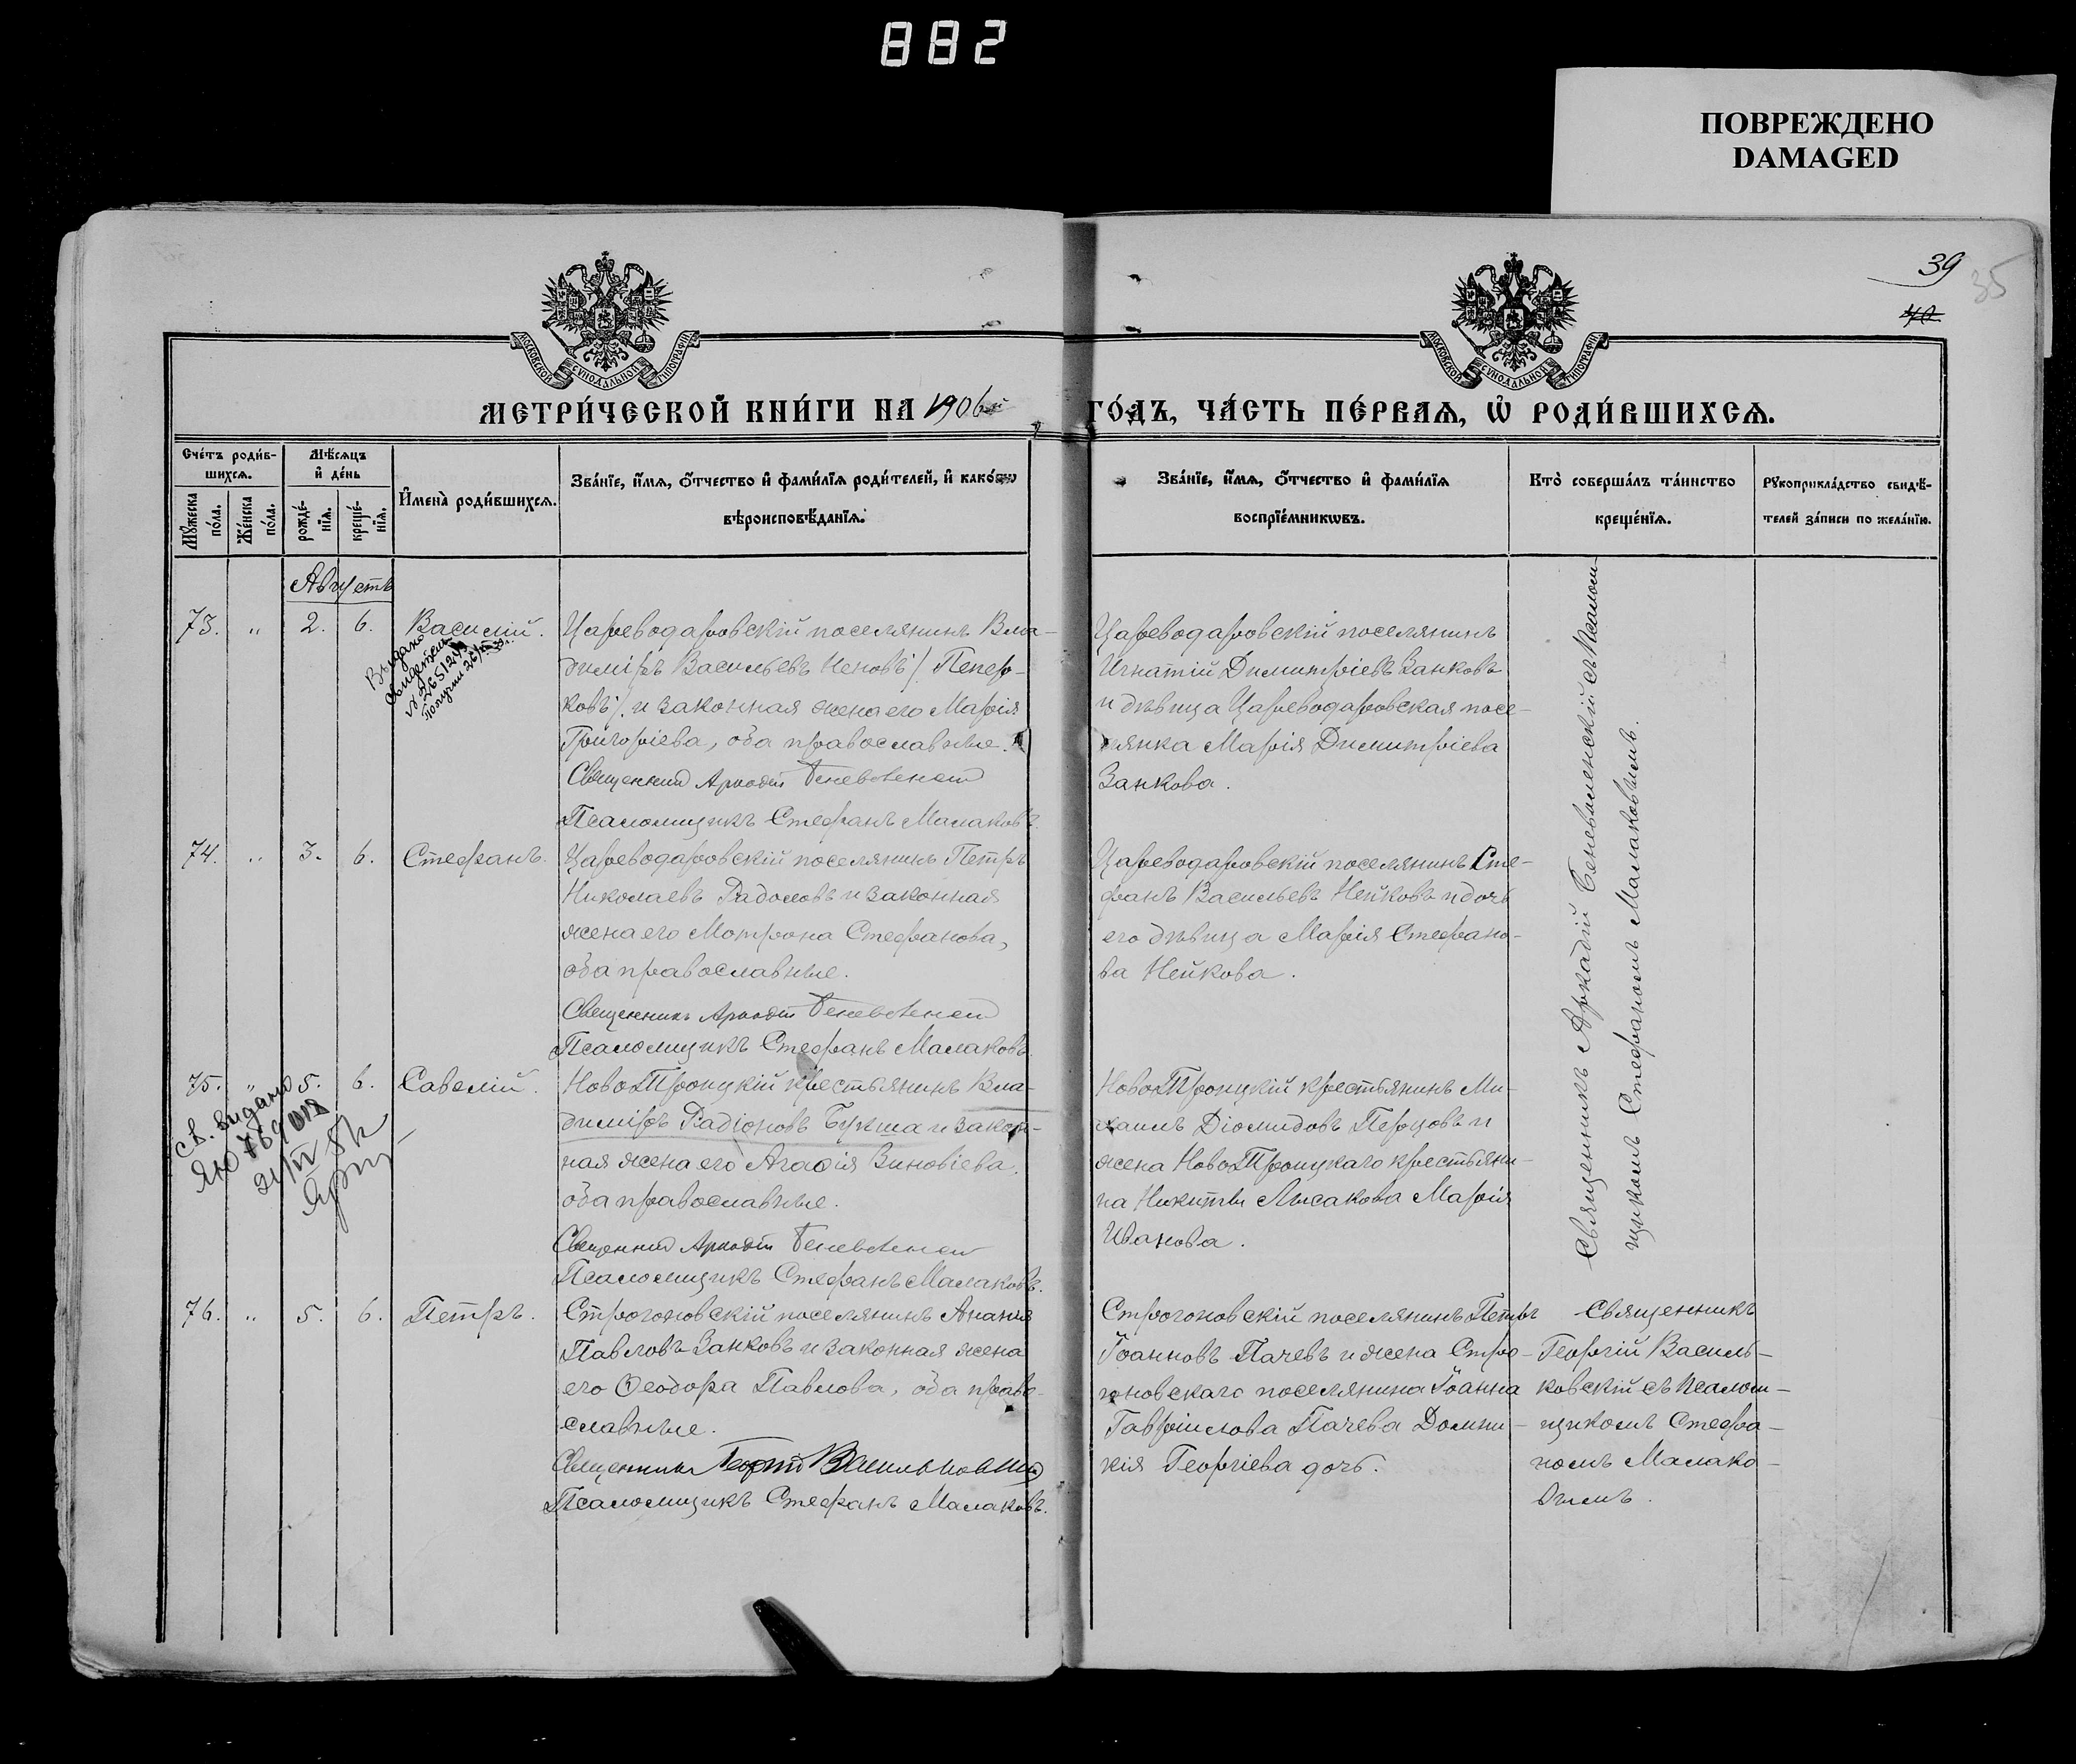 882
ПОВРЕЖДЕНО
DAMAGED
39
35
40
МОСКОВСКОЙ СѴНОДАЛЬНОЙ ТИПОГРАФІИ
МОСКОВСКОЙ СѴНОДАЛЬНОЙ ТИПОГРАФІИ
МЕТРИ́ЧЕСКОЙ КНИ́ГИ НА 1906й
ГО́ДЪ, ЧА́СТЬ ПЕ́РВАѦ, Ѡ҆ РОДИ́ВШИХСѦ.
Сче́тъ роди́в-
шихсѧ.
Мꙋжеска
по́ла.
Же́нска
по́ла.
Мѣ́сѧцъ
и҆ де́нь
рожде́-
нїѧ.
креще́-
нїѧ.
И҆мена̀ роди́вшихсѧ.
Зва́нїе, и҆́мѧ, ѻ҆́тчество и҆ фами́лїѧ роди́телей, и҆ како́гѡ
вѣроисповѣ́данїѧ.
Зва́нїе, и҆́мѧ, ѻ҆́тчество и҆ фами́лїѧ
воспрїе́мникѡвъ.
Кто̀ соверша́лъ та́инство
креще́нїѧ.
Рꙋкоприкла́дство свидѣ́-
телей за́писи по жела́нїю.
Августъ
73. " 2. 6. Василій.
Выдано
свидетел.
Цареводаровскій поселянинъ Вла-
диміръ Васильевъ Неновъ /. Пепер-
ковъ /. и законная жена его Марія
Григоріева, оба православные.
Священникъ Аркадій Беневоленскій
Псаломщикъ Стефанъ Малаковъ.
Цареводаровскій поселянинъ
Игнатій Димитріевъ Занковъ
и дѣвица Цареводаровская посе-
лянка Марія Димитріева
Занкова.
74. " 3. 6. Стефанъ.
Цареводаровскій поселянинъ Петръ
Николаевъ Радоловъ и законная
жена его Мотрона Стефанова,
оба православные.
Священникъ Аркадій Беневоленскій
Псаломщикъ Стефанъ Малаковъ.
Цареводаровскій поселянинъ Сте-
фанъ Васильевъ Нейковъ и дочь
его дѣвица Марія Стефано-
ва Нейкова.
75. " 5. 6. Савелій.
Св. выдано
НовоТроицкій крестьянинъ Вла-
диміръ Радіоновъ Букша и закон-
ная жена его Агафія Зиновіева.
оба православные.
Священникъ Аркадій Беневоленскій
Псаломщикъ Стефанъ Малаковъ.
НовоТроицкій крестьянинъ Ми-
хаилъ Діомидовъ Перцовъ и
жена НовоТроицкаго крестьяни-
на Никиты Лысакова Марія
Иванова.
Священникъ Аркадій Беневоленскій съ Псалом-
щикомъ Стефаномъ Малаковымъ.
76. " 5. 6. Петръ.
Строгоновскій поселянинъ Ананія
Павловъ Занковъ и законная жена
его Ѳеодора Павлова, оба право-
славные.
Священникъ Георгій Васильковскій
Псаломщикъ Стефанъ Малаковъ.
Строгоновскій поселянинъ Петръ
Іоанновъ Пачевъ и жена Стро-
гоновскаго поселянина Іоанна
Гавріилова Пачева Домни-
кія Георгіева дочь.
Священникъ
Георгій Василь-
ковскій съ Псалом-
щикомъ Стефа-
номъ Малако-
вымъ.